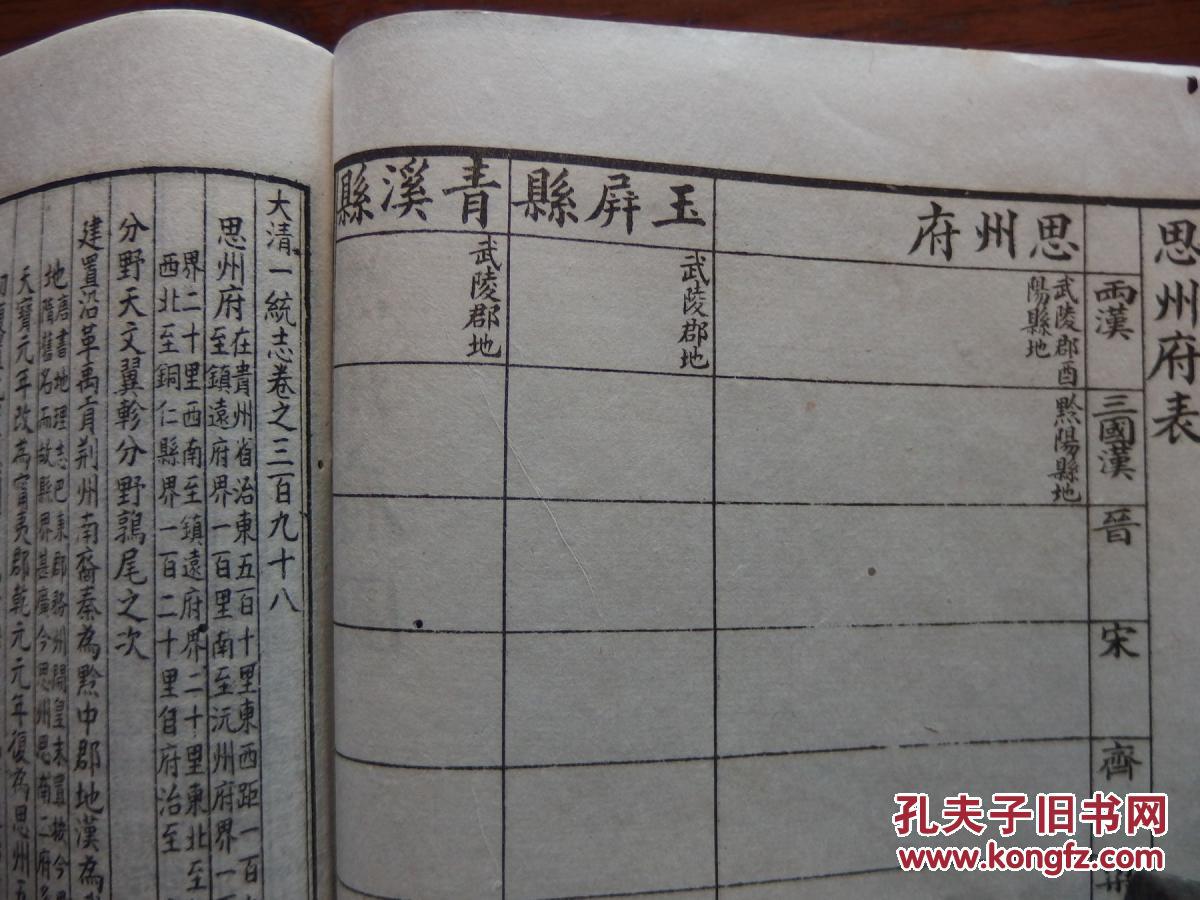 思州府表
兩漢
三國漢
晉
宋
齊
思州府
武陵郡酉
陽縣地
黔陽縣地
玉屏縣
武陵郡地
青溪縣
武陵郡地
大清一統志卷之三百九十八
思州府
在貴州省治東五百十里東西距一百
至鎮遠府界一百里南至沅州府界一
界二十里西南至鎮遠府界二十里東北至
西北至銅仁縣界一百二十里自府治至
分野天文翼軫分野鶉尾之次
建置沿革禹貢荆州南裔秦為黔中郡地漢為
唐書地理志巴東郡務州開皇末置按今
地隋舊名而故縣界甚廣今思州思南二府
天寶元年改為寧夷郡乾元元年復為思州五
孔夫子旧书网
www.kongfz.com